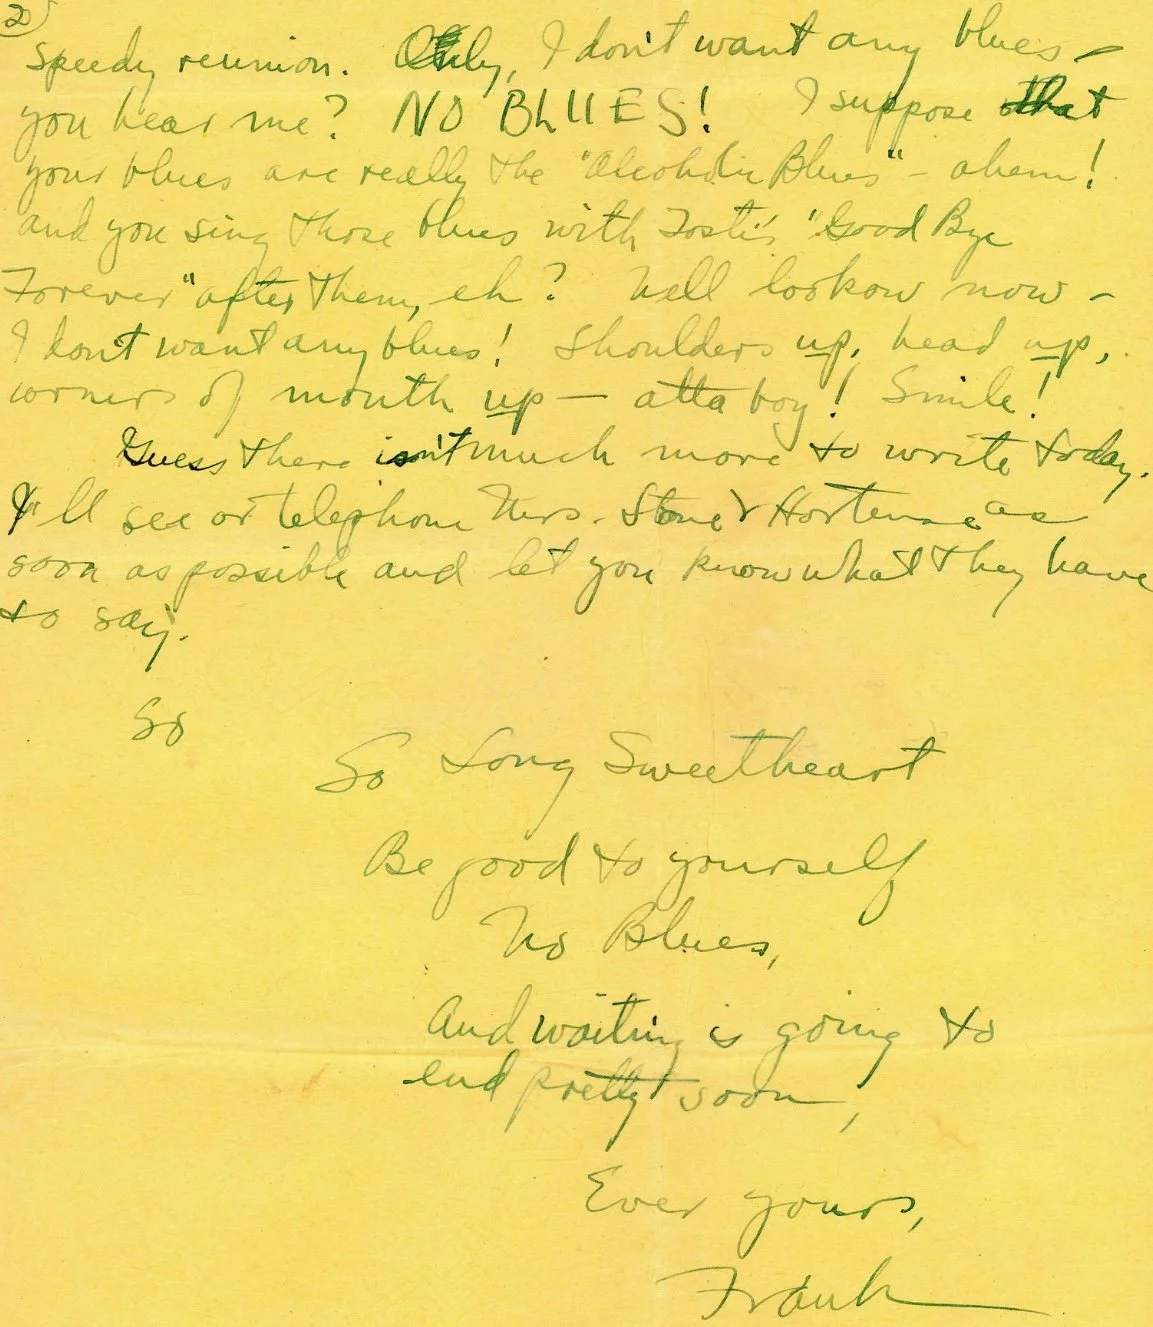 2
speedy reunion. Only, I don't want any blues –
you hear me? NO BLUES! I suppose that
your blues are really the "Alcoholic Blues" – ahem!
and you sing those blues with Tosti's "Good Bye
Forever" after them, eh? Well lookow now –
I don't want any blues! Shoulders up, head up,
corners of mouth up – atta boy! Smile!
Guess there isn't much more to write today.
I'll see or telephone Mrs. Stone & Hortense as
soon as possible and let you know what they have
to say.
So
So Long Sweetheart
Be good to yourself
No Blues,
And waiting is going to
end pretty soon,
Ever yours,
Frank